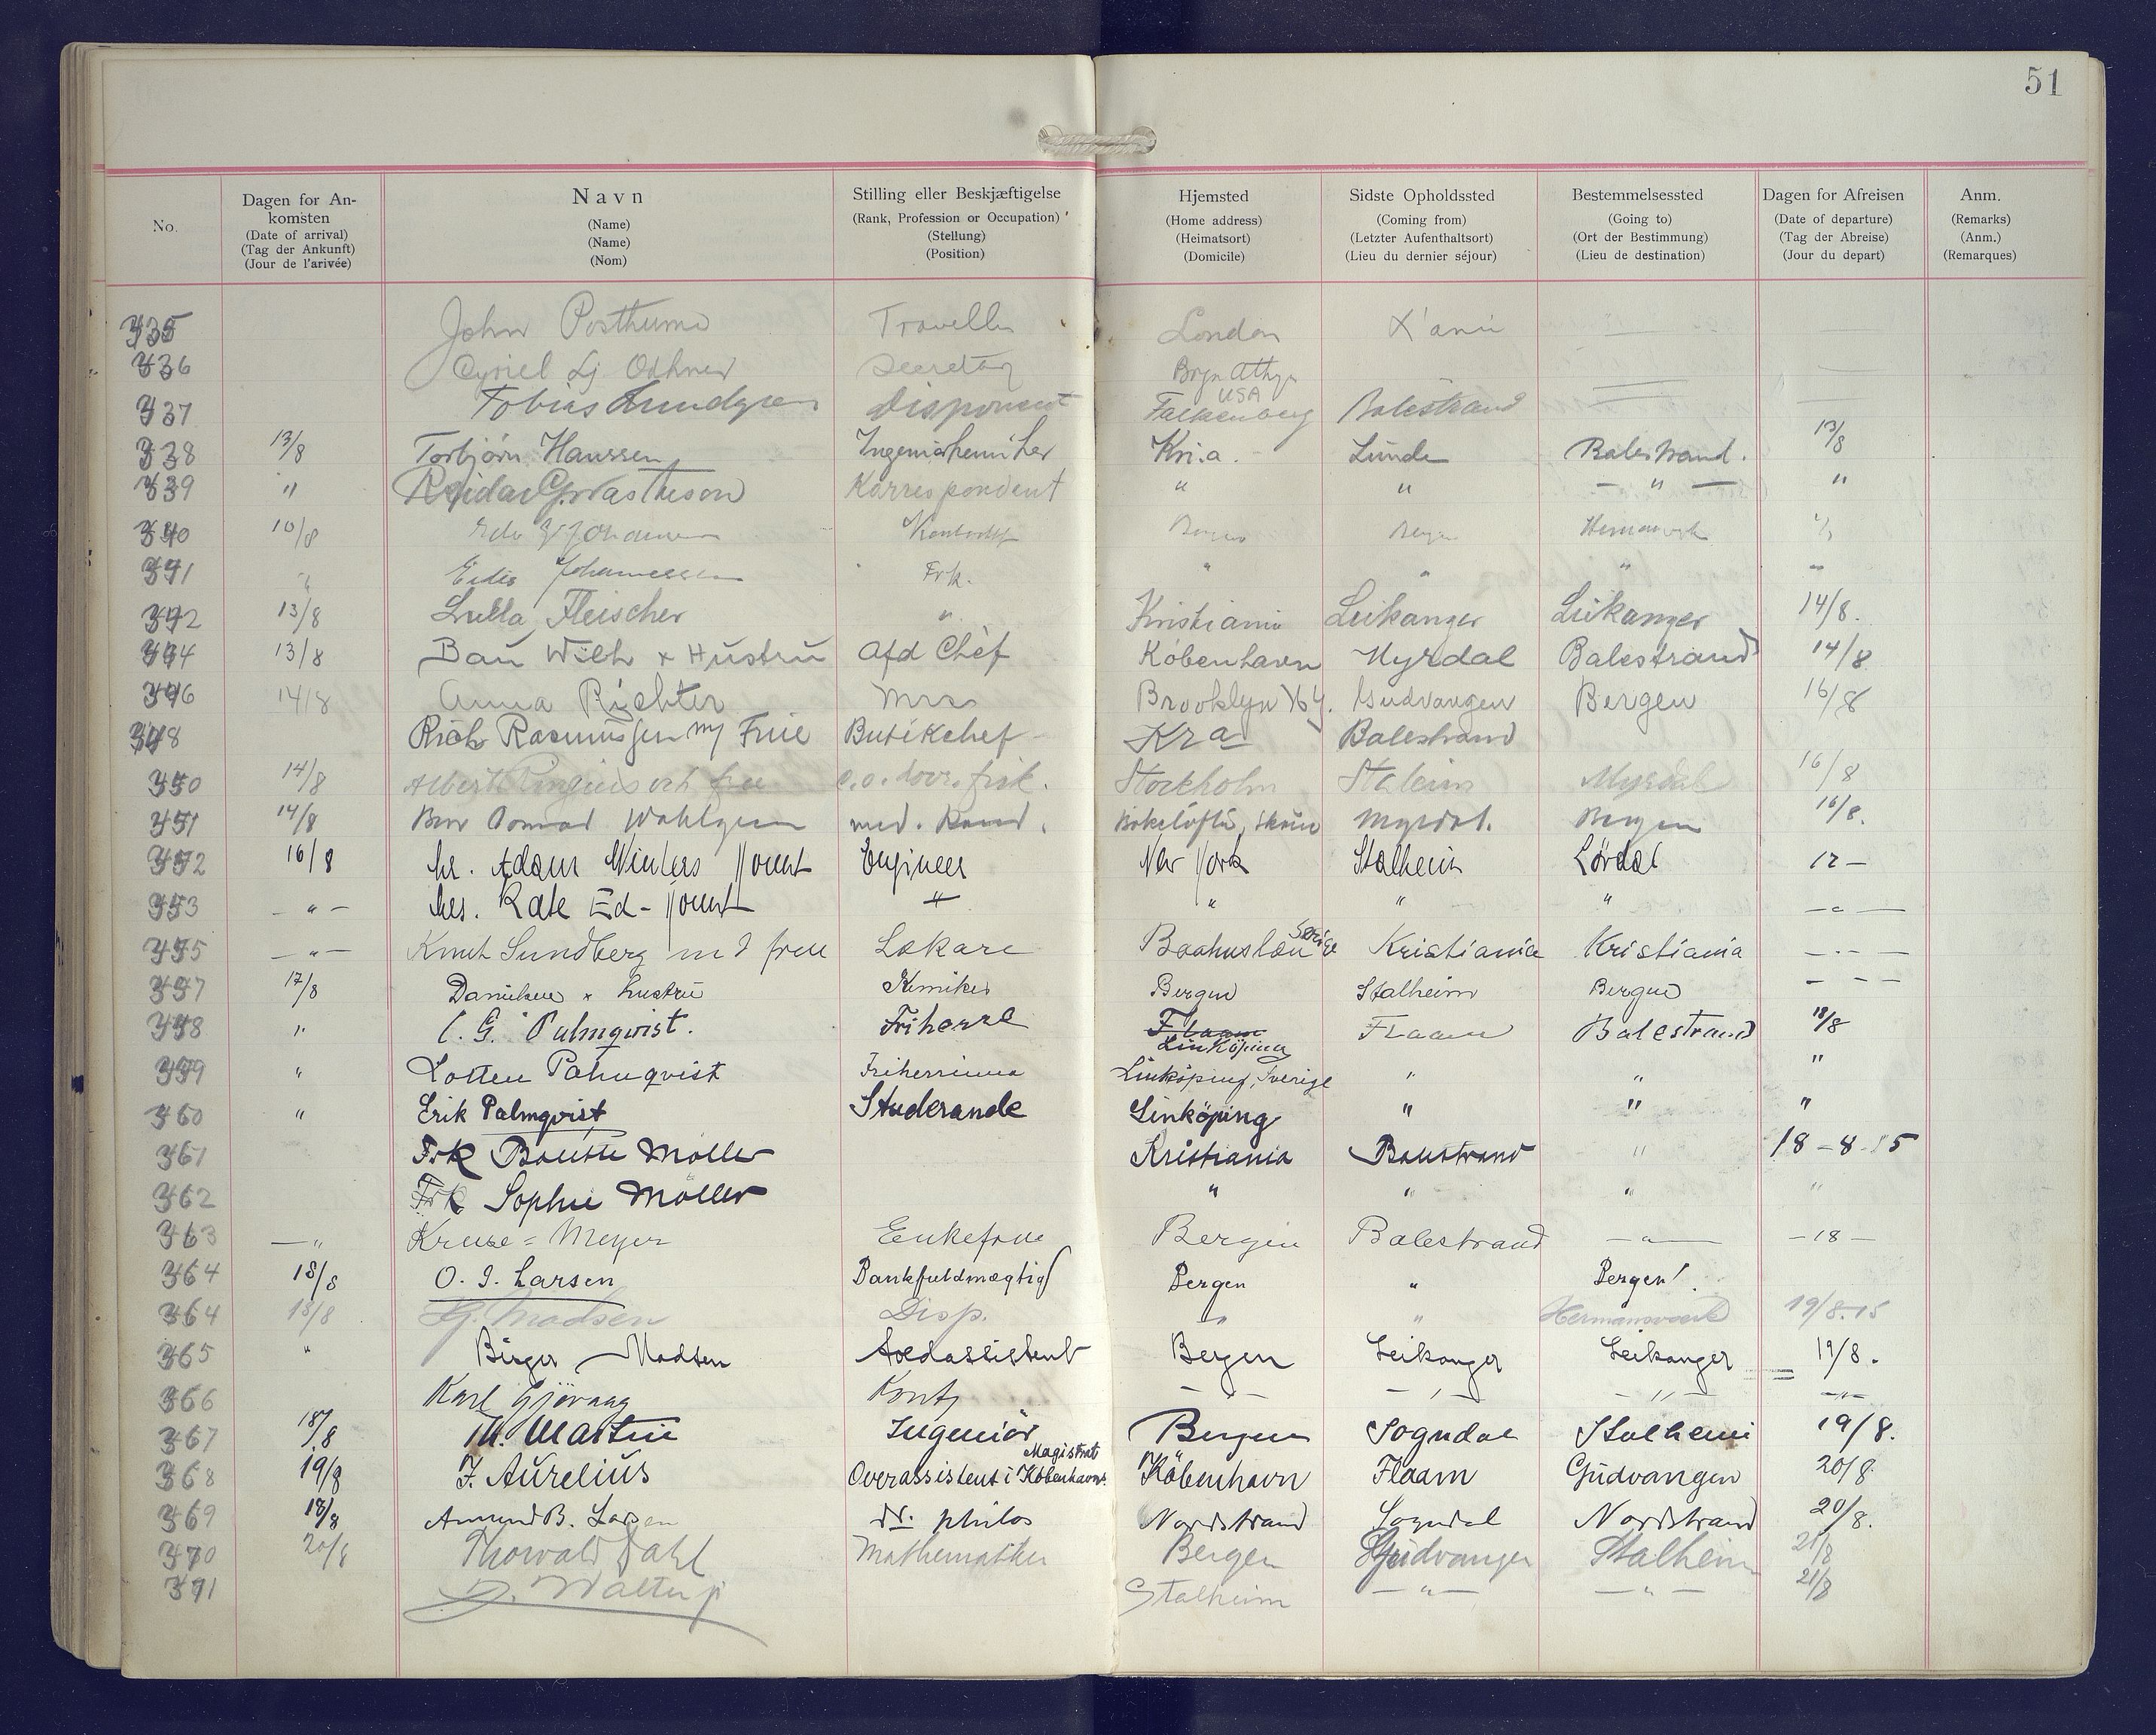 51
No.
Dagen for An-
komsten
(Date of arrival)
(Tag der Ankunft)
(Jour de l'arivée)
Navn
(Name)
(Name)
(Nom)
Stilling eller Beskjæftigelse
(Rank, Profession or Occupation)
(Stellung)
(Position)
Hjemsted
(Home address)
(Heimatsort)
(Domicile)
Sidste Opholdssted
(Coming from)
(Letzter Aufenthaltsort)
(Lieu du dernier séjour)
Bestemmelsessted
(Going to)
(Ort der Bestimmung)
(Lieu de destination)
Dagen for Afreisen
(Date of departure)
(Tag der Abreise)
(Jour du depart)
Anm.
(Remarks)
(Anm.)
(Remarques)
335 John Posthuma London X'ania
336 Cyriel Lj Odhner Secretary Bryn Athyn USA
337 Tobias Lundgren Disponent Falkenberg Balestrand
338 13/8 Torbjörn Hanssen Kri.a. Lunde Balestrand. 13/8
339 " Korrespondent " " — " — "
340 10/8 Bergen Bergen
341 " Johannessen Frk. " " "
342 13/8 Lulla Fleischer " Kristiania Leikanger Leikanger 14/8.
344 13/8 Bau Wilh + Hustru Afd Chef København Myrdal Balestrand 14/8
346 14/8 Anna Richter Mrs Brooklyn NY. Gudvangen Bergen 16/8
348 Rich Rasmussen m/ Frue Butikchef Kra Balestrand
350 14/8 Albert och fru Stockholm Stalheim Myrdal 16/8
351 14/8 Wahlgren med. kand. Skåne Myrdal. Bergen 16/8.
352 16/8 Mr. Adam Winters Yount Engineer New York Stalheim Lördal 17 —
353 — " — Mrs. Kate Ed- Yount " " " "
355 — " — Knut Sundberg med frue Läkare Boahuslän Sverige Kristiania Kristiania — " —
357 17/8 Danielsen + hustru Kemiker Bergen Stalheim Bergen — " —
358 " C. G. Palmqvist. Friherre Flaam Linköping Flaam Balestrand 18/8
359 " Lotten Palmqvist Friherrinna Linköping, Sverige " " "
360 " Erik Palmqvist Studerande Linköping " " "
361 Frk Møller Kristiania Balestrand " 18-8-15
362 Frk Sophie Møller " " " "
363 — " Kruse = Meyer Enkefrue Bergen Balestrand — " — — 18 —
364 18/8 O. J. Larsen Bankfuldmægtig Bergen " Bergen!
364 18/8 G. Madsen Disp. " " Hermansverk 19/8.15
365 " Birger Madsen Bergen Leikanger Leikanger 19/8.
366 Karl Gjövaag — " — — " — — " — — " —
367 18/8 M. Martin Ingeniör Bergen Sogndal Stalheim 19/8.
368 19/8 F. Aurelius Overassistent i Københavns Magistrat København Flaam Gudvangen 20/8
369 18/8 Amund B. Larsen dr. philos Nordstrand Sogndal Nordstrand 20/8.
370 20/8 Thorvald Dahl Mathematiker Bergen Gudvangen Stalheim 21/8
371 Stalheim — " — — " — 21/8